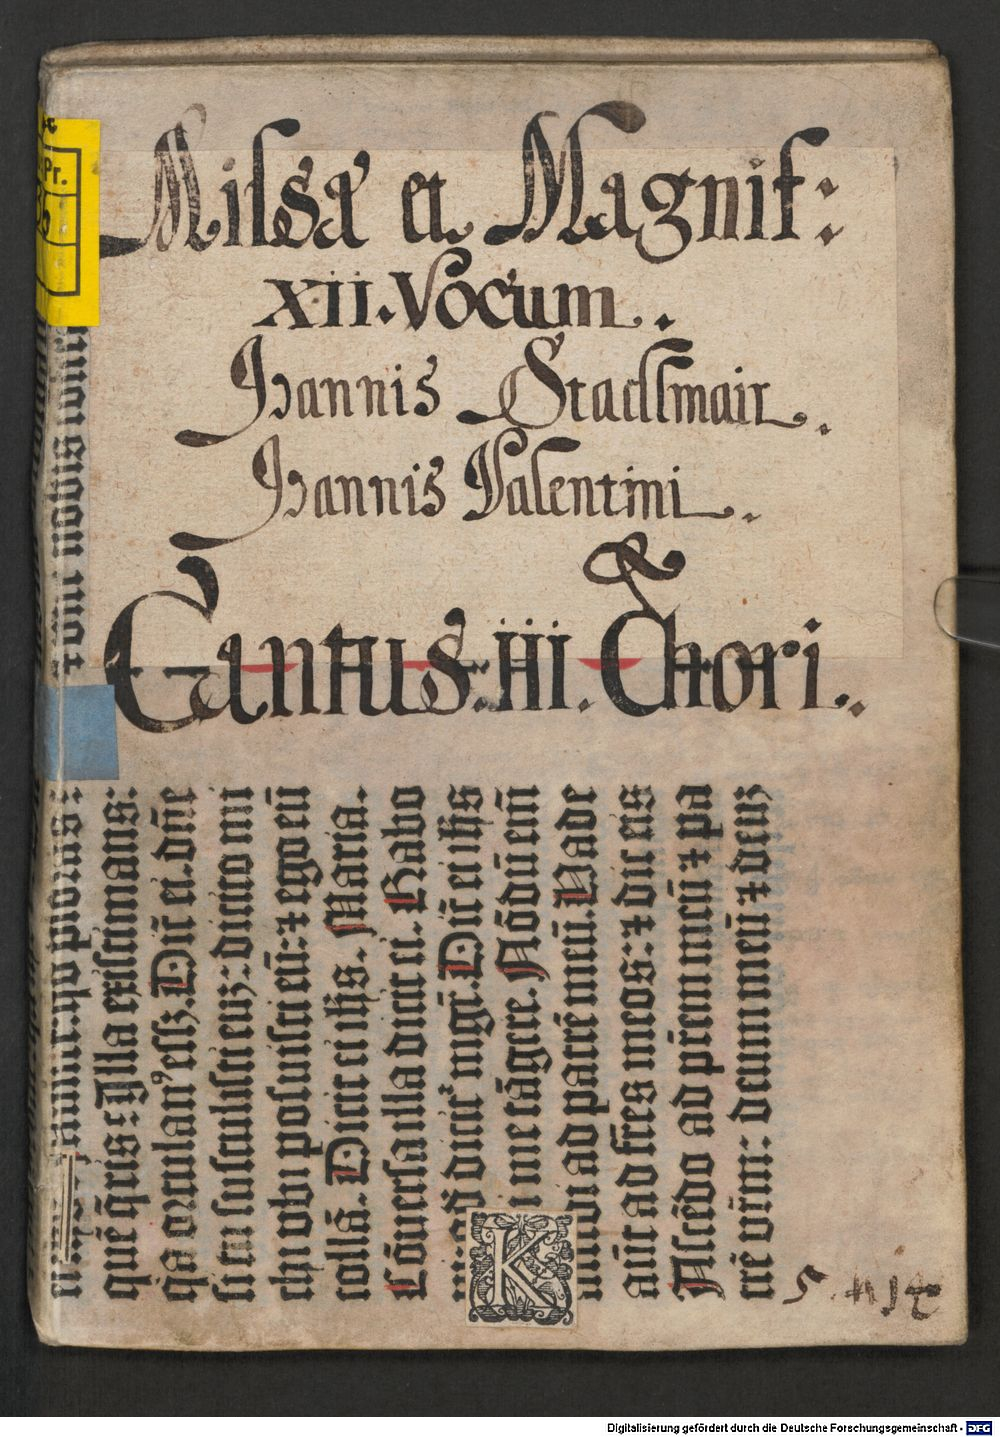 Missæ et Magnif:
XII. Vocum.
Ioannis Stadlmair.
Ioannis Valentini.
Cantus. III. Chori.
quē q̄ris: Illa existimans:
q̇a ortulan⁹ essz. Dicit ei. dn̄e
si tu sustulisti euz: dicito mi
chi ubi posuisti eū: ⁊ ego eū
tollā. Dicit ei ihs. Maria.
Cōuersa illa dicit ei. Rabo
qḋ dicit᷑ mgr̄. Dic̄ ei ihs
me tāgere. Nōdū em̄
ad patrē meū. Vade
aūt ad fr̄es meos: ⁊ dic eis
Ascēdo ad pr̄em meū ⁊ pa
trē vr̄m: deum meū ⁊ deuz
K
Pr.
Digitalisierung gefördert durch die Deutsche Forschungsgemeinschaft - DFG